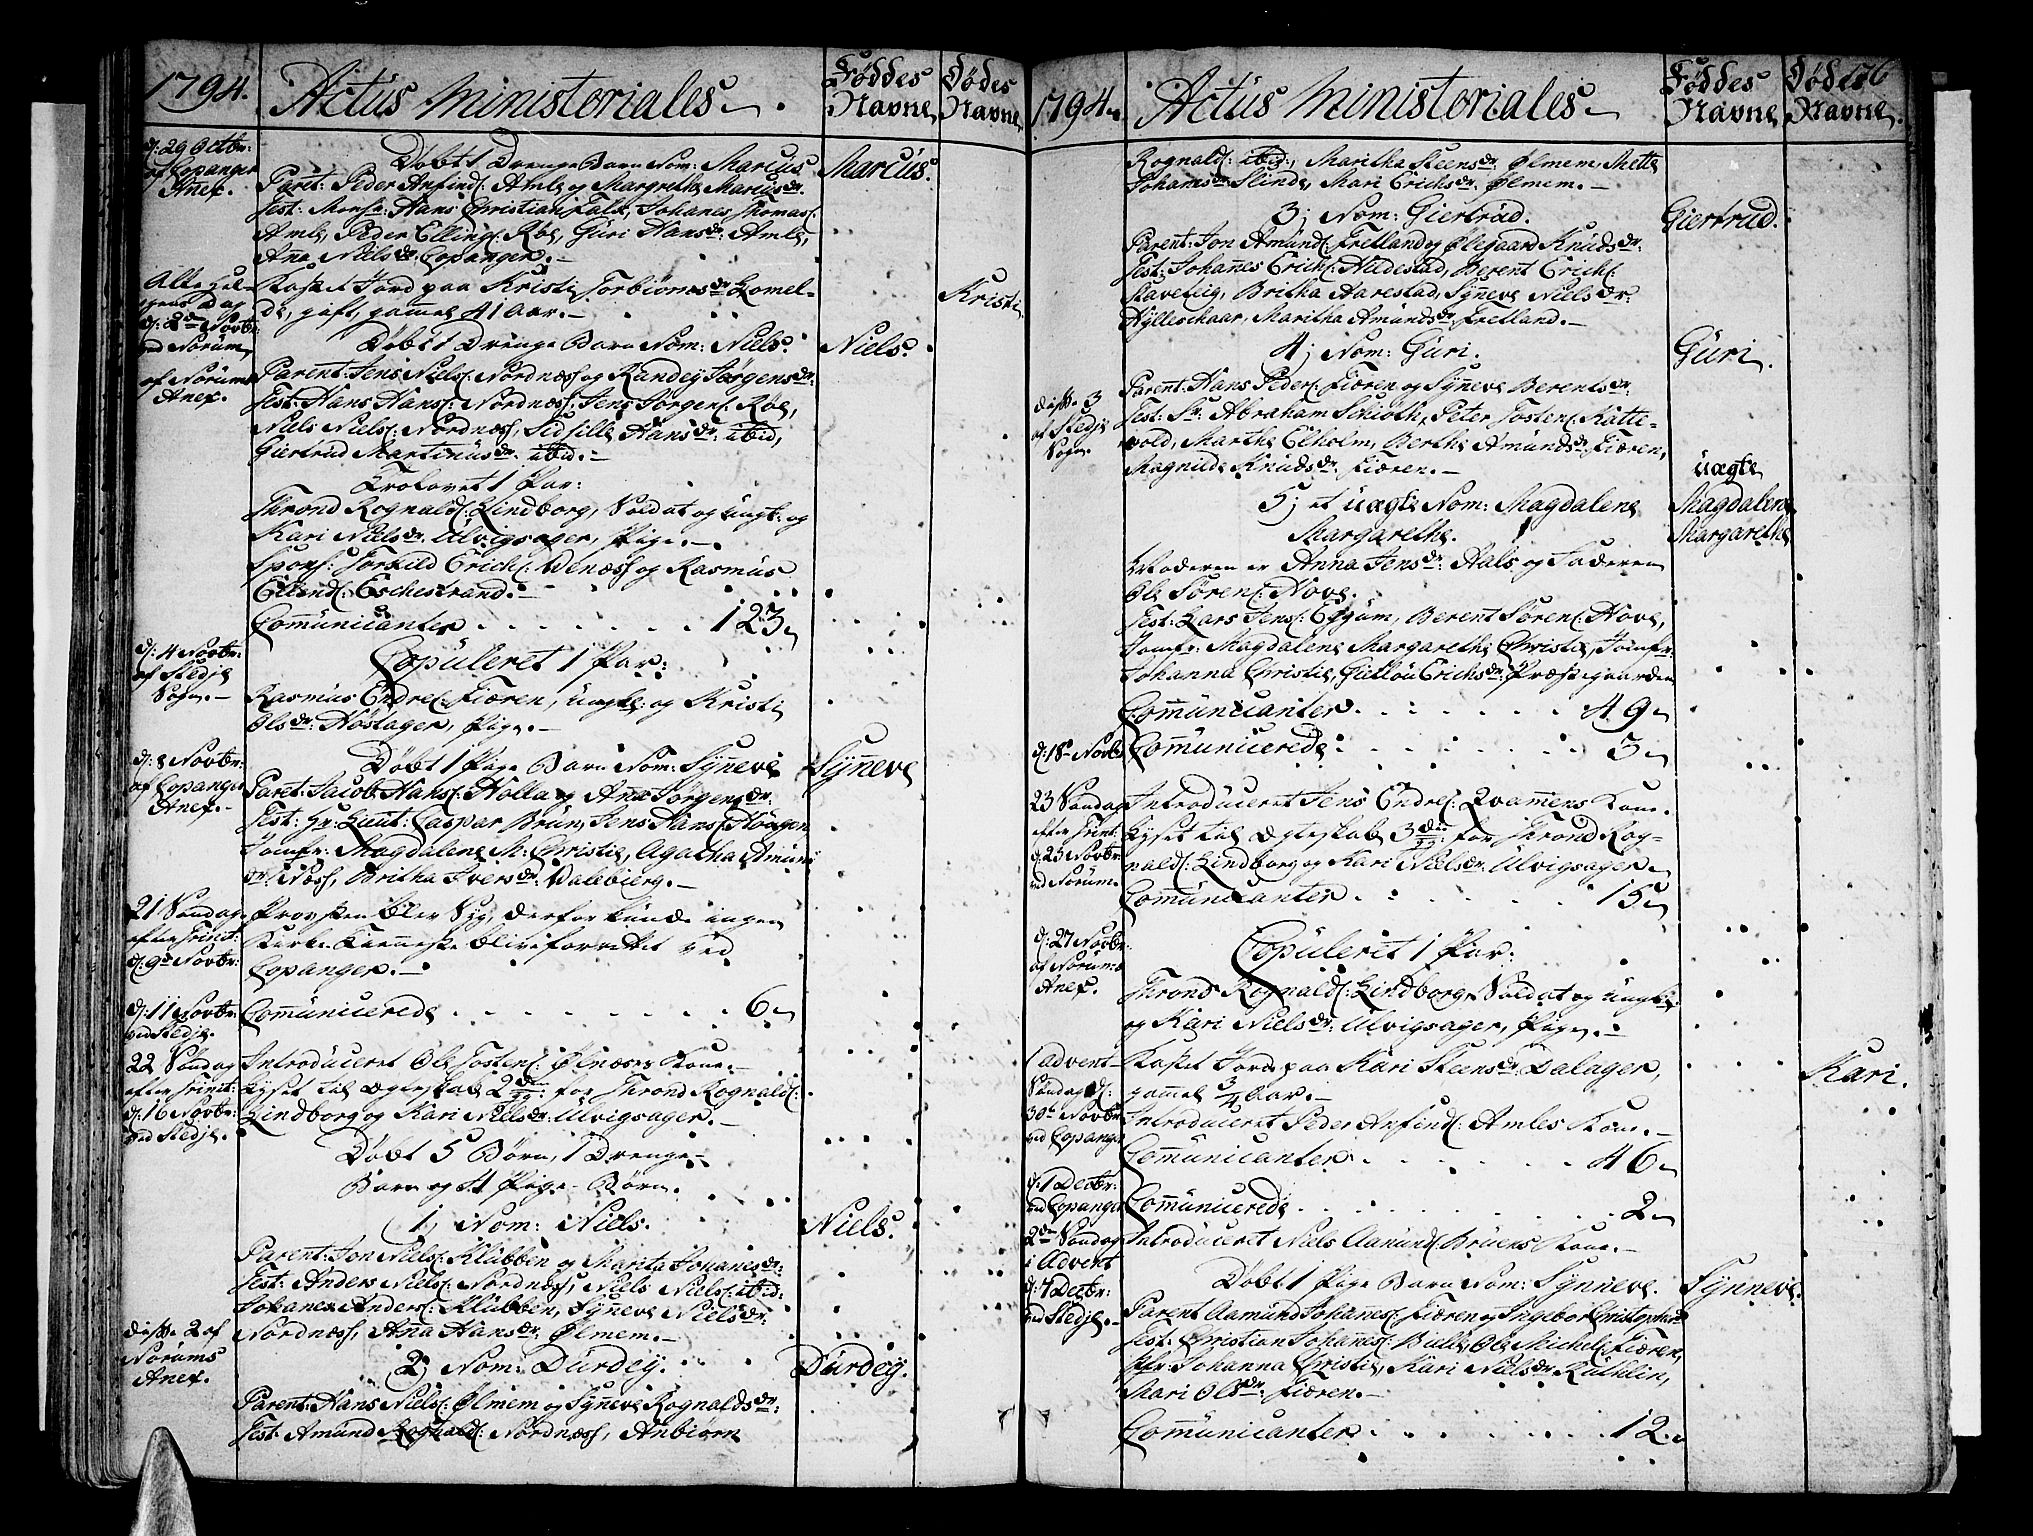 1794.
Actus Ministeriales
Føddes Navne
Dødes Navne
d: 29 Octbr:
af Copanger
Anex.
Døbt 1 Drenge Barn Nom: Marcus
Marcus.
Parēt: Peder Anfinds: Amle og Margrethe Marcusdr
Test: Monsr: Hans Christian Falk, Johanes Thomas:
Amle, Peder Ellings: Røe, Guri Hansdr: Amle,
Anna Nielsdr Copanger.
Alle Hel-
gens Dag
d: 2den Novbr:
ved Norum
Kastet Jord paa Kristi Torbiørnsdr Lomel-
Kristi
de, gift, gammel 41 Aar.
Døbt 1 Drenge Barn Nom: Niels.
Niels.
af Norums
Anex.
Parent: Jens Niels: Nordnæss og Randey Jørgensdr
Test: Hans Hans: Nordnæss, Jens Jørgens: Røe,
Niels Niels: Nordnæss, Sidsille Hansdr: ibid,
Giertrud Martinusdr: ibid.
Trolovet 1 Par:
Thrond Rognalds: Lindborg, Soldat og ungk: og
Kari Nielsdr. Ulvigsager, Pige.
Spons: Torkild Erichs: Wenæss og Rasmus
Ellends: Eschestrand.
Com̄unicanter 123
d: 4 Novbr:
af Stedje
Sogn.
Copuleret 1 Par:
Rasmus Endres: Fiæren, ungk: og Kristi
Olsdr: Høstager, Pige.
d: 8 Novbr:
af Copanger
Anex.
Døbt 1 Pige Barn Nom: Syn̄eve
Syn̄eve
Parēt: Jacob Hans: Holla og An̄a Jørgensdr
Test: Hr: Lieut: Caspar Brun, Jens Hans: Hougen
Jomfr: Magdalene M: Christie, Agatha Amunds
dr: Nøss, Britha Iversdr: Dalebierg.
21 Søndag
efter Trinit:
d: 9de Novbr:
Provsten blev syg, derfor kunde ingen
Kirke-Tienneste blive forrettet ved
Copanger.
d: 11 Novbr:
ved Stedje
Com̄unicerede 6
22 Søndag
efter Trinit:
d: 16 Novbr:
ved Stedje
Introduceret Ole Jostens: Ølnæsses Kone.
Lyset til Ægteskab 2den Gg: for Thrond Rognalds:
Lindborg og Kari Nielsdr: Ulvigsager.
Døbt 5 Børn, 1 Drenge-
Barn og 4 Pige-Børn.
1, Nom: Niels.
Niels.
Parent: Jon Niels: Klubben og Marita Johanesdr:
Test: Anders Niels: Nordnæss, Niels Niels: ibid:
Johanes Anders: Klubben, Syn̄eve Nielsdr:
Nordnæss, An̄a Hansdr: Ølmem.
disse 2 af
Norums
Anex.
2, Nom: Durdey.
Durdey.
Parent: Hans Niels: Ølmem og Syn̄eve Rognaldsdr:
Test: Amund Rognalds: Nordnæss, Anbiørn
1794
Actus Ministeriales
Føddes Navne
Dødes Navne
176
Rognalds: ibid:, Maritha Steensdr: Ølmem, Mette
Johansdr: Slinde, Mari Erichsdr. Ølmem.
3, Nom: Giertrud.
Giertrud.
Parent: Jon Amunds: Fretland og Ølegaard Knudsdr.
Test: Johannes Erichs: Hildestad, Berent Erichs:
Stavetlig, Britha Aarestad, Syn̄eve Nielsdr:
Hylleschaar, Maritha Amundsdr: Fretland.
4, Nom: Guri.
Guri.
disse 3
af Stedje
Sogn.
Parent: Hans Peders: Fiæren og Syn̄eve Berentsdr
Test: Sr: Abraham Schioth, Peter Jostens: Katte-
vold, Marthe Elholm, Berthe Amundsdr: Fiæren,
Magnilde Knudsdr: Fiæren.
uægte
5, et uægte Nom: Magdalene
Margarethe.
Magdalene
Margarethe
Moderen er An̄a Jensdr: Hals og Faderen
Ole Sørens: Hove.
Test: Lars Jens: Elgum, Berent Sørens: Hove,
Jomfr: Magdalene Margarethe Christie, Jomfr:
Johanna Christie, Gietlou Erichsdr: Præstegaarden
Com̄unicanter 49
d: 18de Novbr:
Com̄unicerede 3
23 Søndag
efter Trinit:
d: 23 Novbr:
ved Norum.
Introduceret Jens Endres: Qvamens Kone.
Lyset til Ægteskab 3die Gg: for Thrond Rog-
nalds: Lindborg og Kari Nielsdr: Ulvigsager.
Com̄unicanter 15
d: 27 Novbr:
af Norums
Anex.
Copuleret 1 Par:
Thrond Rognalds: Lindborg, Soldat og ungk:
og Kari Nielsdr: Ulvigsager, Pige.
1 Advent-
Søndag d:
30te Novbr:
ved Copanger
Kastet Jord paa Kari Steensdr: Dalager,
Kari.
gammel 3/4 Aar.
Introduceret Peder Anfinds: Amles Kone.
Com̄unicanter 46
d: 1 Decbr:
ved Copanger
Com̄unicerede 2
2den Søndag
i Advent
d: 7 Decbr:
ved Stedje.
Introduceret Niels Aamunds: Bruens Kone.
Døbt 1 Pige Barn Nom: Syn̄eve.
Syn̄eve.
Parent Aamund Johanes: Fiæren og Ingebor Christophersdr
Test: Christian Johanes: Bulle, Ole Michels: Fiæren,
Jfr: Johanna Christie, Kari Nielsdr: Kuthlin,
Mari Olsdr: Fiæren.
Com̄unicanter 12